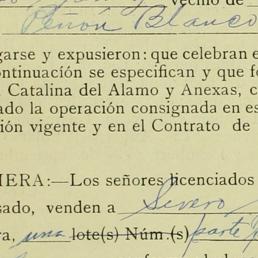 vecino de
Peñón Blanco
garse y expusieron: que celebran e
ontinuación se especifican y que fo
Catalina del Alamo y Anexas, c
ado la operación consignada en es
ión vigente y en el Contrato de
MERA:—Los señores licenciados
sado, venden a Severo
ra, una lote(s) Núm.(s) parte